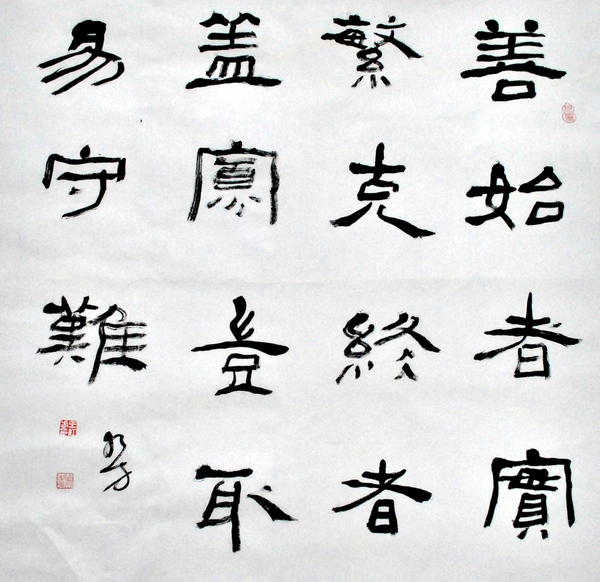 善始者實
繁克終者
盖寡豈取
易守難